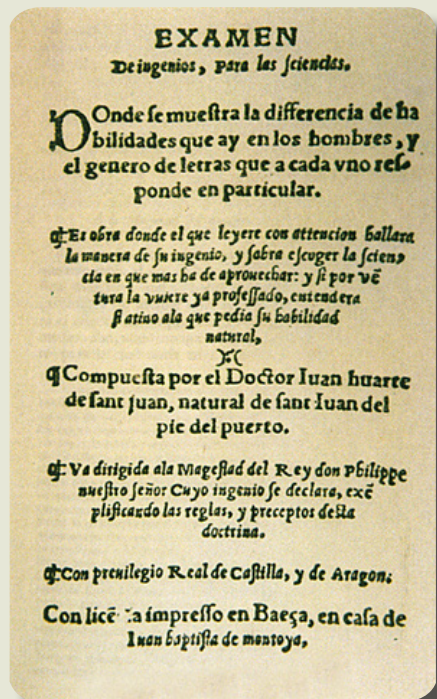 EXAMEN
De ingenios, para las sciencias.
DOnde se muestra la differencia de ha
bilidades que ay en los hombres, y
el genero de letras que a cada vno res-
ponde en particular.
¶ Es obra donde el que leyere con attencion hallara
la manera de su ingenio, y sabra escoger la scien-
cia en que mas ha de aprouechar: y si por vẽ
tura la vuiere ya professado, entendera
si atino ala que pedia su habilidad
natural,
¶ Compuesta por el Doctor Iuan huarte
de sant juan, natural de sant Iuan del
pie del puerto.
¶ Va dirigida ala Magestad del Rey don Philippe
nuestro señor Cuyo ingenio se declara, exẽ
plificando las reglas, y preceptos desta
doctrina.
¶ Con preuilegio Real de Castilla, y de Aragon.
Con impresso en Baeça, en casa de
Iuan baptista de montoya,